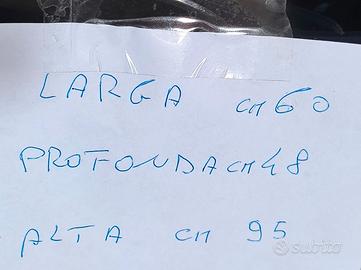 LARGA cm 60
PROFONDA cm 48
ALTA cm 95
subito